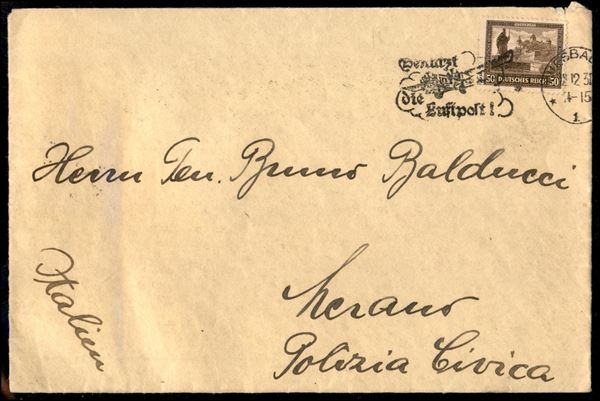 Benutzt
die Luftpost!
50 DEUTSCHES REICH 50
12.30
1
Herrn Ten. Bruno Balducci
Italien
Merano
Polizia Civica